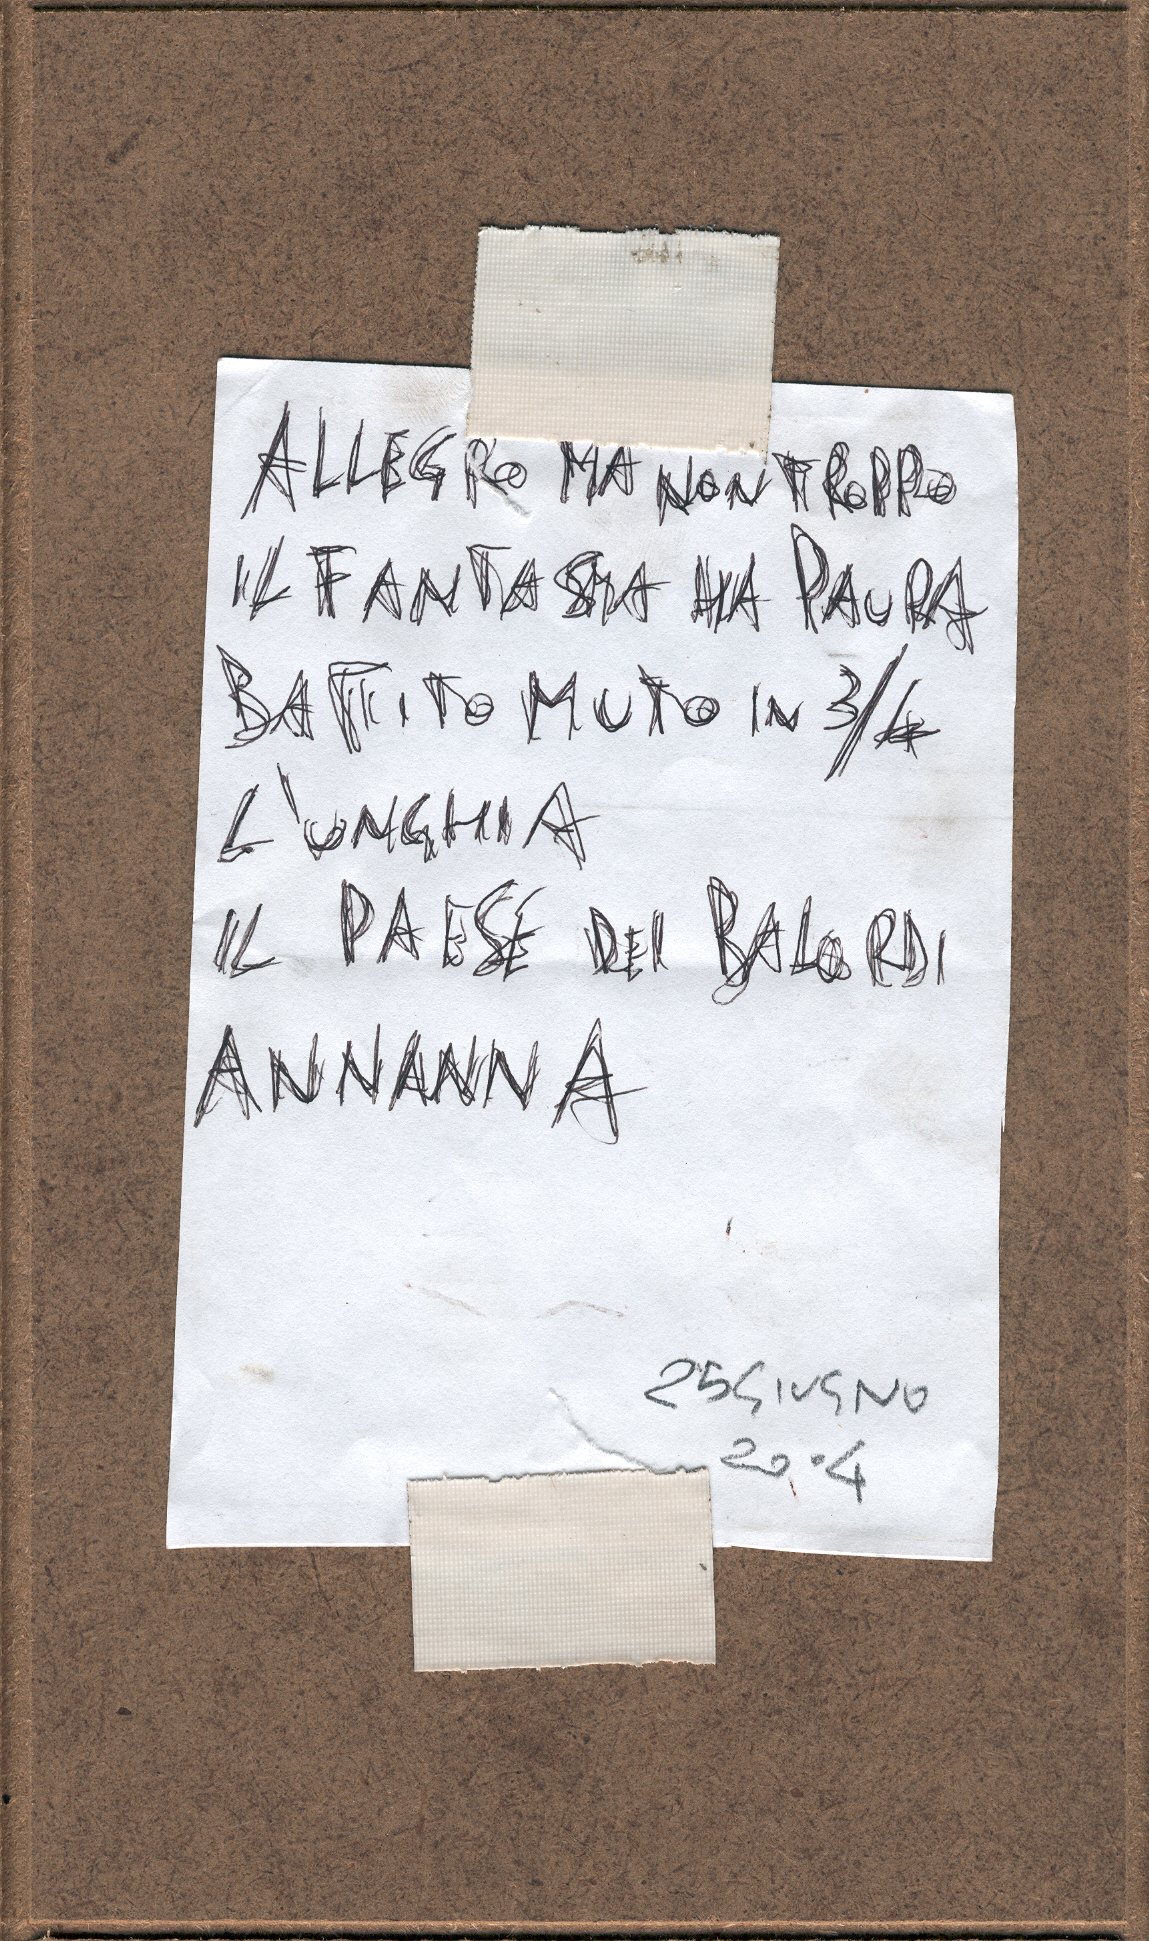 ALLEGRO MA NON TROPPO
IL FANTASMA HA PAURA
BATTITO MUTO IN 3/4
L'UNGHIA
IL PAESE DEI BALORDI
ANNANNA
25 GIUGNO
2004